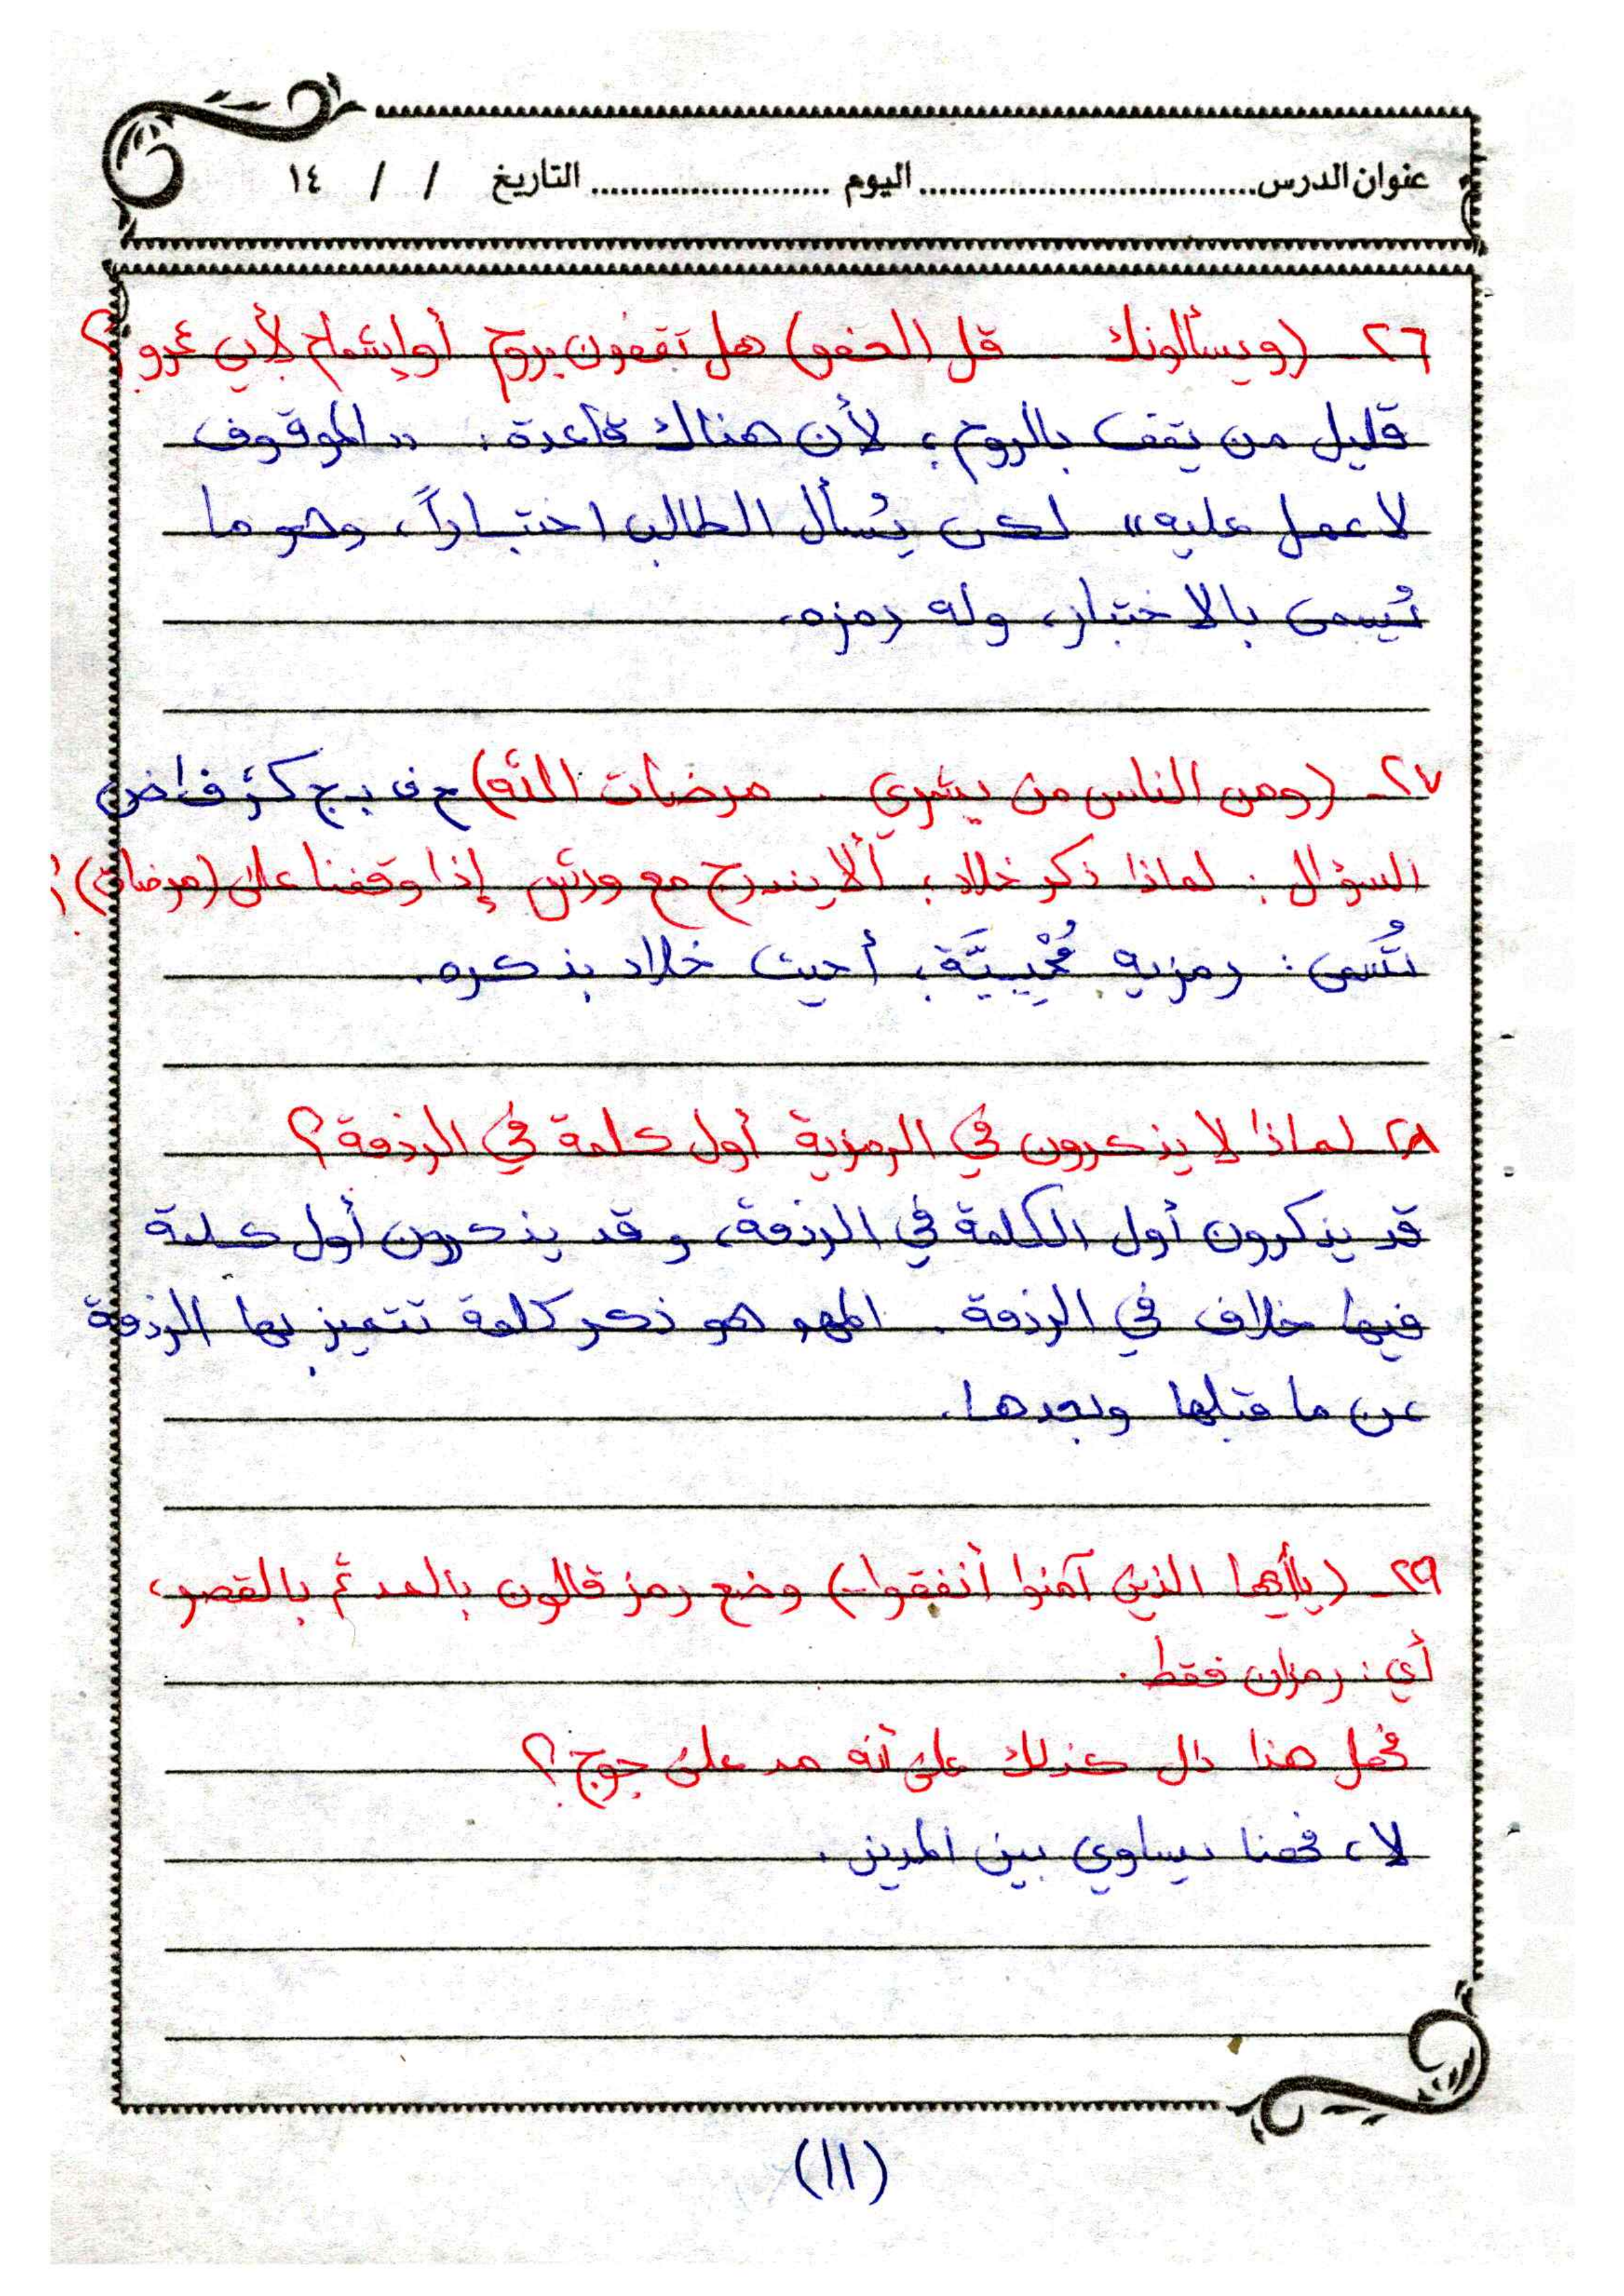 عنوان الدرس.................................. اليوم ........................ التاريخ / / ١٤
٢٦ـ (ويسألونك قل العفو) هل تقفون بروم أو إشمام لأبي عمرو؟
قليل من يقف بالروم؛ لأن هناك قاعدة: «الموقوف
لا عمل عليه» لكن يُسأل الطالب اختباراً، وهو ما
يُسمى بالاختبار، وله رمزه.
٢٧ـ (ومن الناس من يشري .. مرضات الله)
السؤال: لماذا ذكر خلاد؛ ألا يندرج مع ورش إذا وقفنا على (مرضات)؟
تُسمى: رمزية مُحْيِيَّة، أحيت خلاد بذكره.
٢٨ـ لماذا لا يذكرون في الرمزية أول كلمة في الردفة؟
قد يذكرون أول الكلمة في الردفة، وقد يذكرون أول كلمة
فيها خلاف في الردفة. المهم هو ذكر كلمة تتميز بها الردفة
عن ما قبلها وبعدها.
٢٩ـ (يأيها الذين آمنوا أنفقوا) وضع رمز قالون بالمد ثم بالقصر،
أي: رمزان فقط.
فهل هذا دال كذلك على أنه مد على جوج؟
لا، فهنا يساوي بين المدين.
(١١)